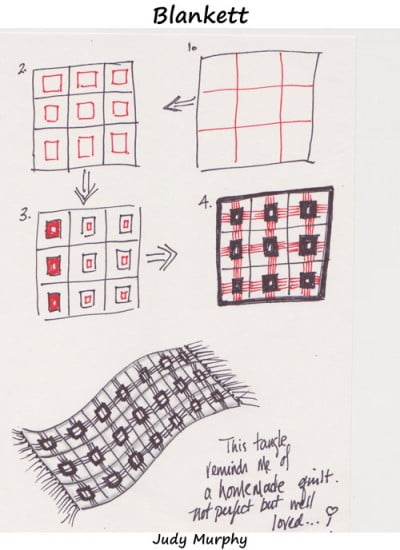 Blankett
1.
2.
3.
4.
This tangle
reminds me of
a homemade quilt.
not perfect but well
loved...
Judy Murphy